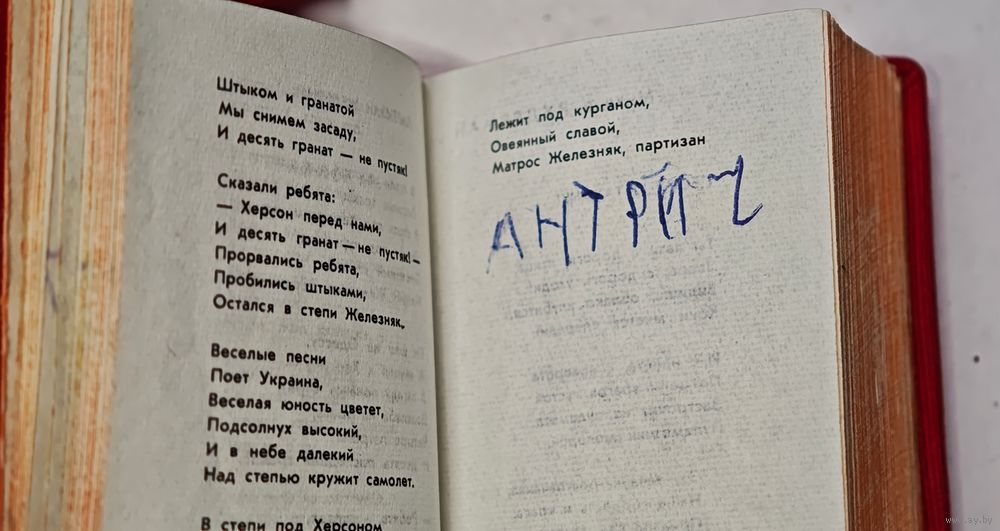 Штыком и гранатой
Мы снимем засаду,
И десять гранат — не пустяк!
Сказали ребята:
— Херсон перед нами,
И десять гранат — не пустяк! —
Прорвались ребята,
Пробились штыками,
Остался в степи Железняк.
Веселые песни
Поет Украина,
Веселая юность цветет,
Подсолнух высокий,
И в небе далекий
Над степью кружит самолет.
В степи под Херсоном
Лежит под курганом,
Овеянный славой,
Матрос Железняк, партизан
www.ay.by